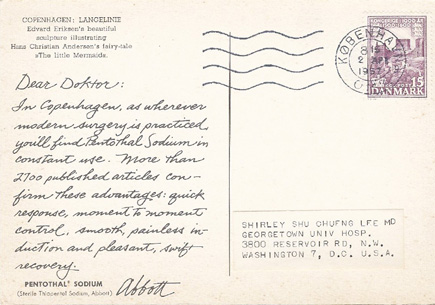 COPENHAGEN: LANGELINIE
Edvard Eriksen's beautiful
sculpture illustrating
Hans Christian Andersen's fairy-tale
»The little Mermaid«.
Dear Doktor:
In Copenhagen, as wherever
modern surgery is practiced,
you'll find Pentothal Sodium in
constant use. More than
2700 published articles con-
firm these advantages: quick
response, moment to moment
control, smooth, painless in-
duction and pleasant, swift
recovery.
PENTOTHAL® SODIUM
(Sterile Thiopental Sodium, Abbott)
Abbott
KØBENHAVN
1957
15
DANMARK
SHIRLEY SHU CHUFNG LFE MD
GEORGETOWN UNIV HOSP.
3800 RESERVOIR RD, N.W.
WASHINGTON 7, D.C. U.S.A.